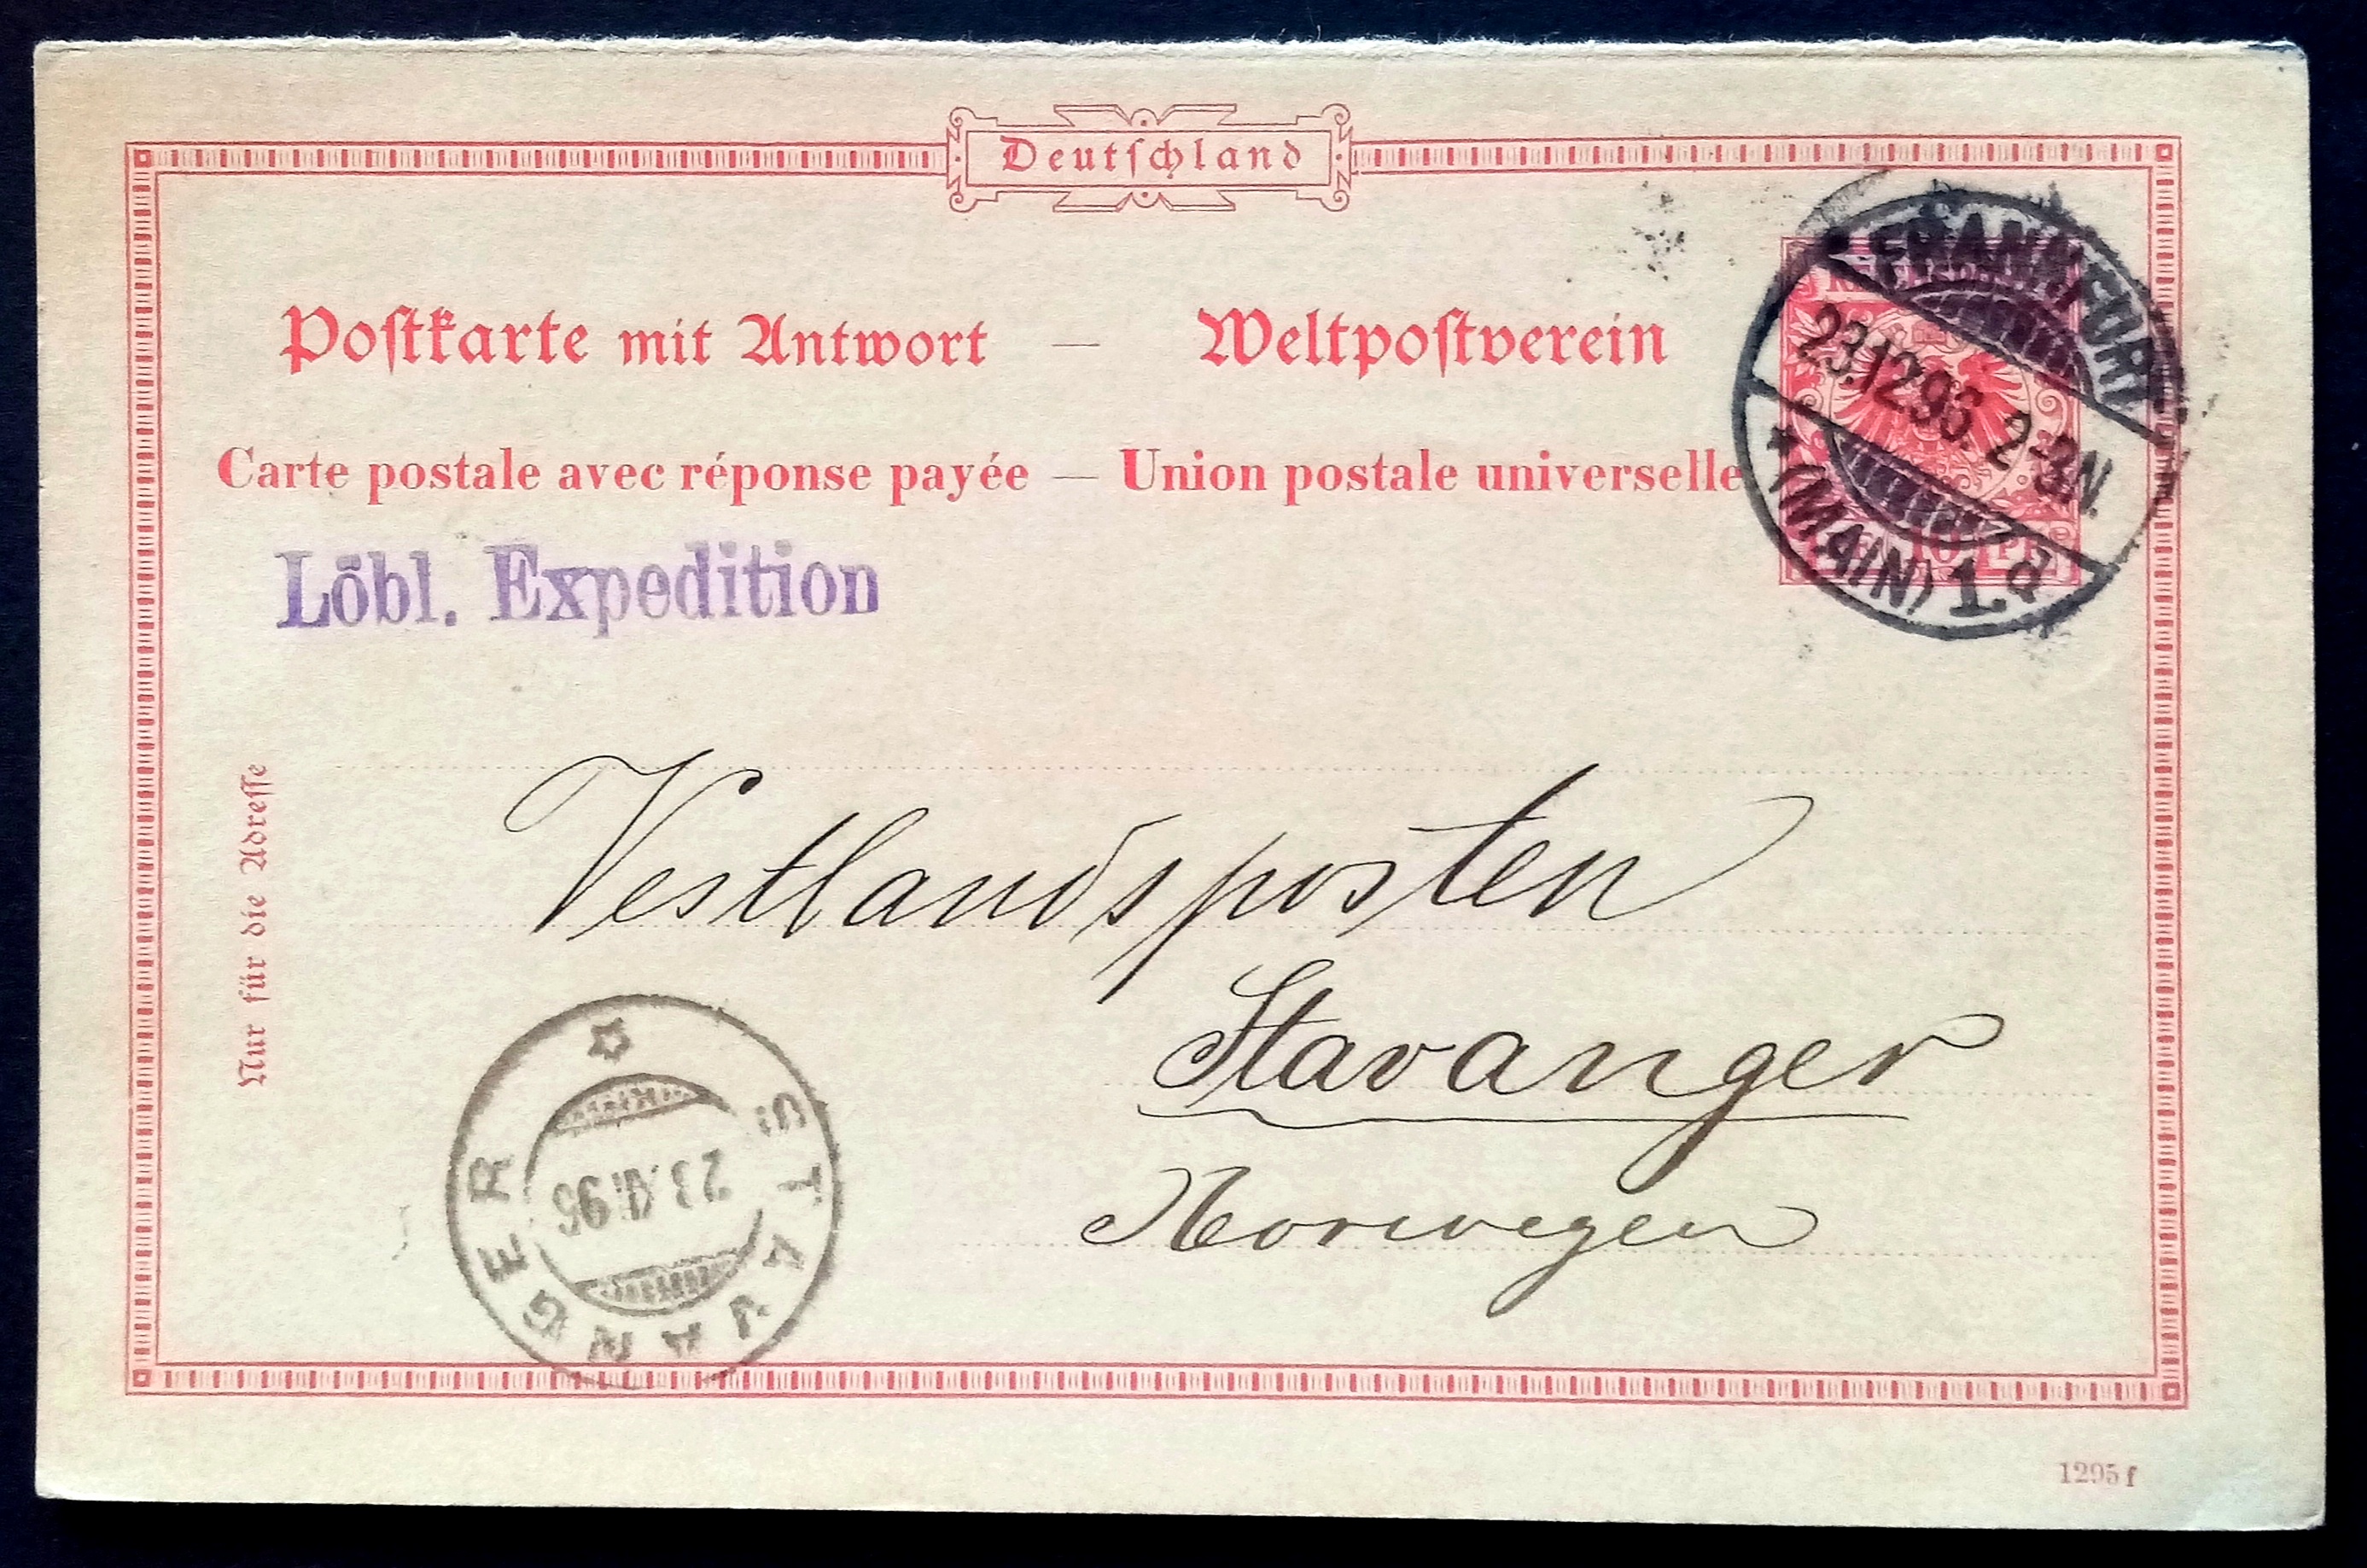 Deutschland
Postkarte mit Antwort — Weltpostverein
Carte postale avec réponse payée — Union postale universelle
FRANKFURT
23.12.96. 2-3N.
* (MAIN) 1.d
10
Löbl. Expedition
Nur für die Adresse
Vestlandsposten
Stavanger
Norwegen
STAVANGER
1295 f